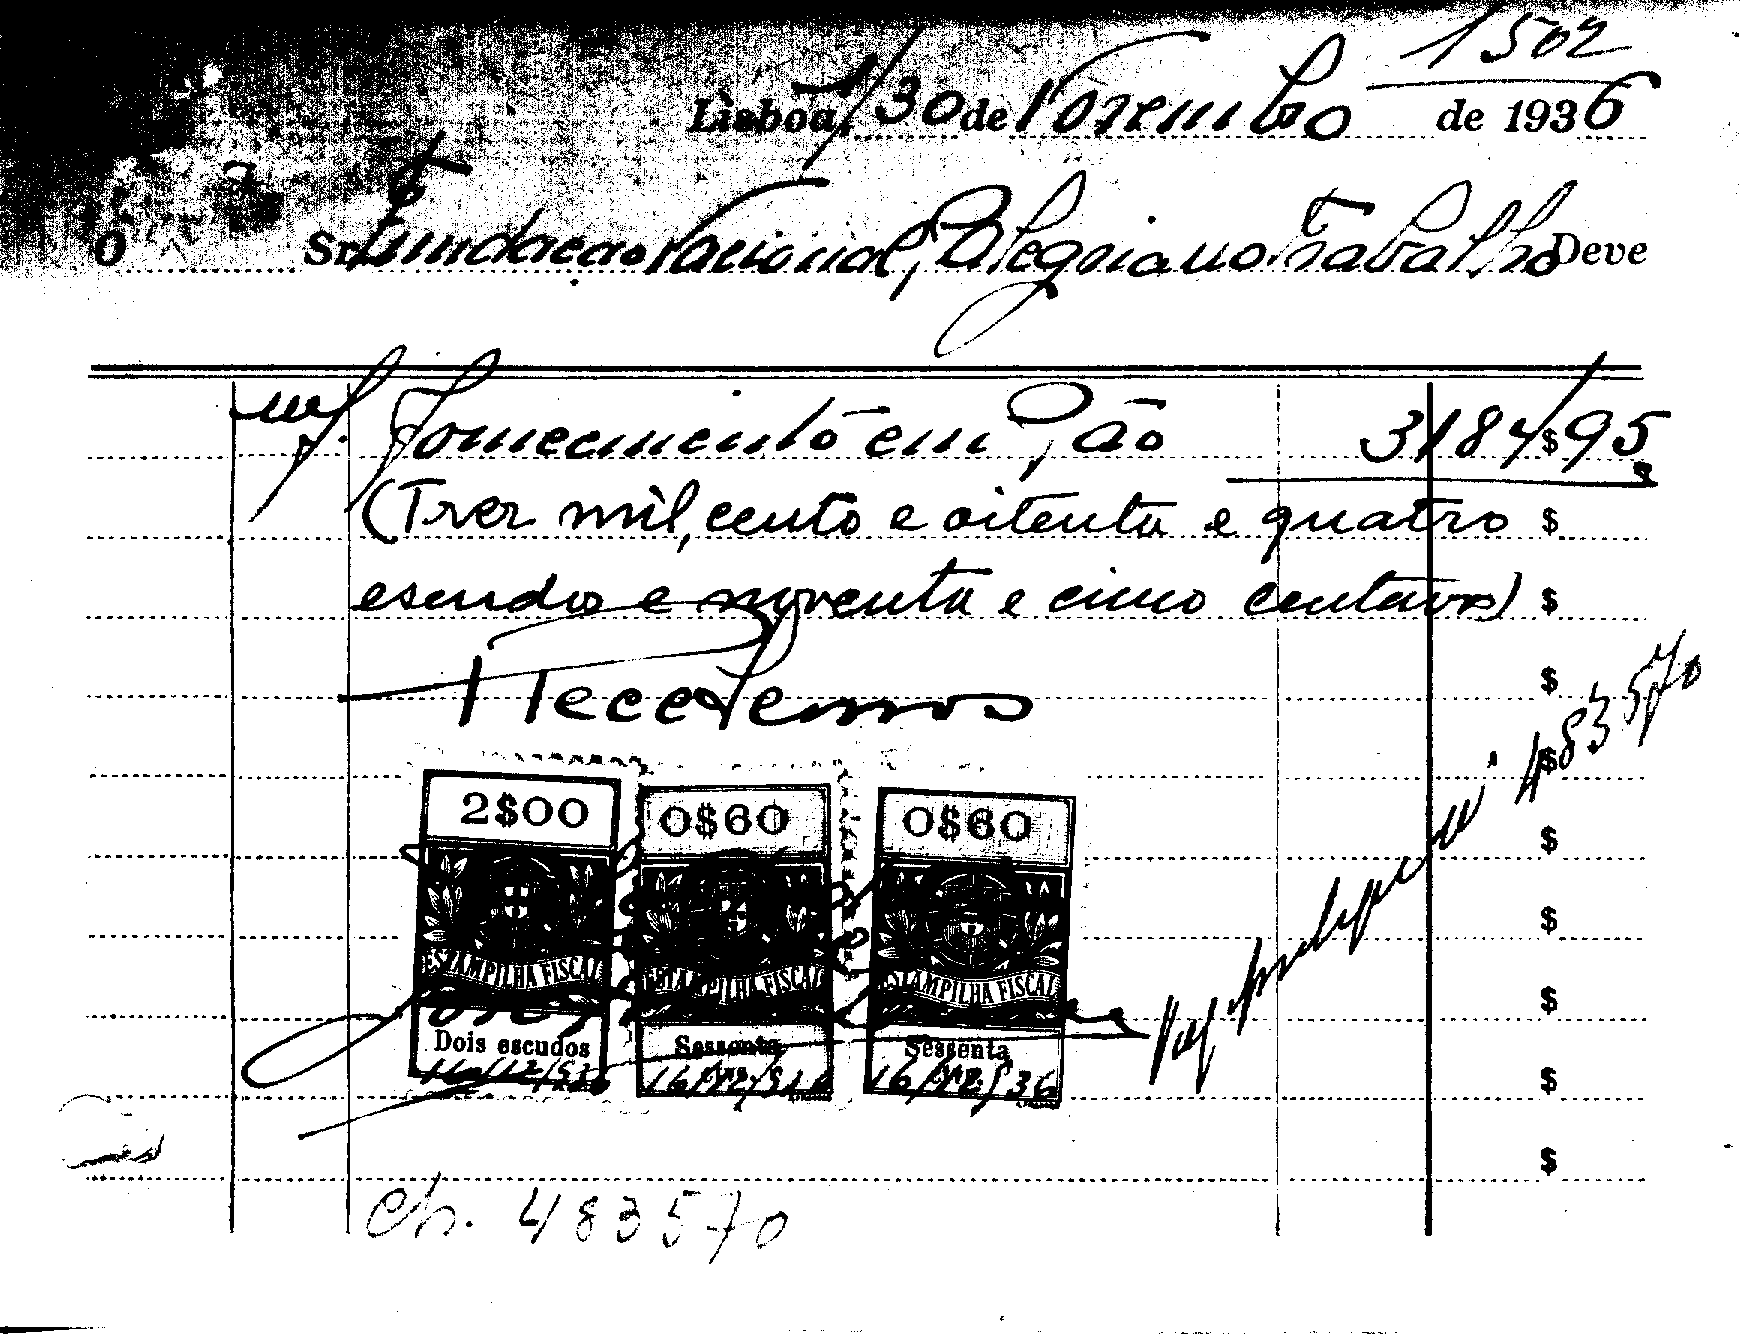 1502
Lisboa, 30 de Novembro de 1936
O Sr. Fundação Nacional, Alegria no Trabalho Deve
Fornecimento em Pão 3184$95
(Tres mil, cento e oitenta e quatro $
escudos e noventa e cinco centavos) $
Recebemos $
$
2$00 0$60 0$60
$
$
ESTAMPILHA FISCAL ESTAMPILHA FISCAL ESTAMPILHA FISCAL
$
Dois escudos Sessenta Sessenta
16/12/36 16/12/36 16/12/36
$
$
483570
Ch. 483570